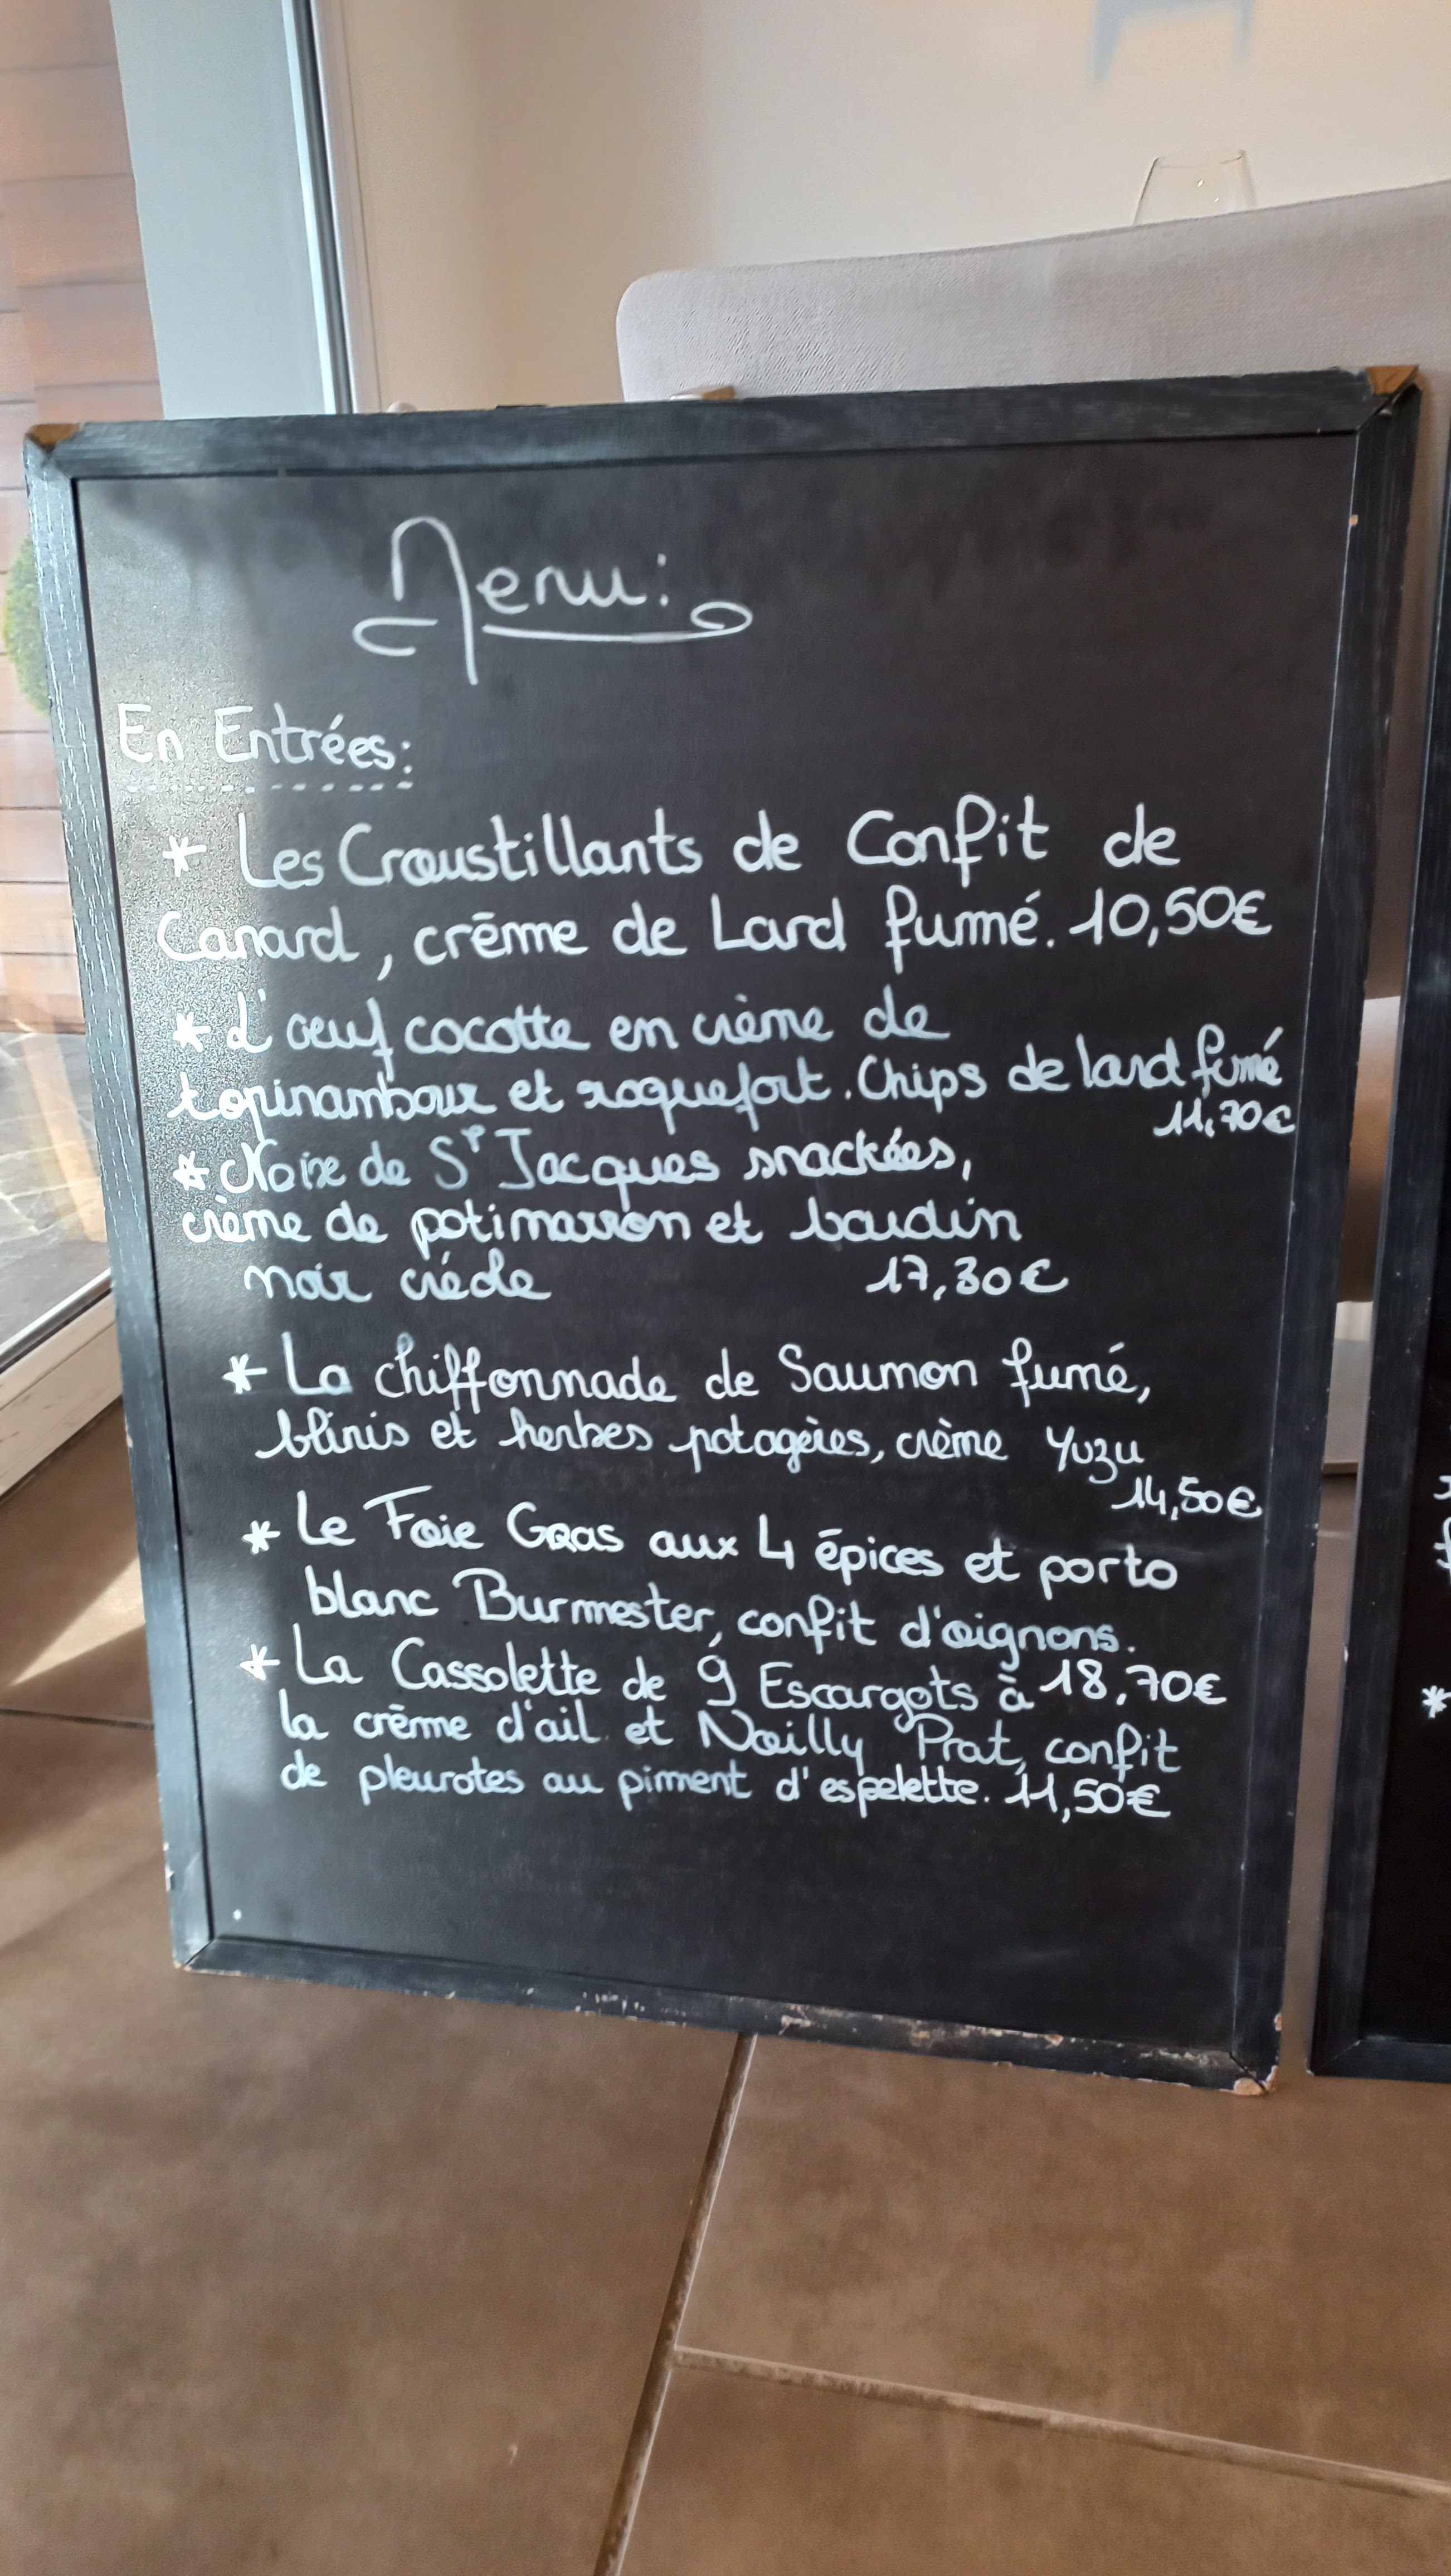 Menu:
En Entrées:
* Les Croustillants de Confit de
Canard, crème de Lard fumé. 10,50€
* L'oeuf cocotte en crème de
topinambour et roquefort. Chips de lard fumé
11,70€
* Noix de St Jacques snackées,
crème de potimarron et boudin
noir créole 17,30€
* La chiffonnade de Saumon fumé,
blinis et herbes potagères, crème Yuzu
14,50€
* Le Foie Gras aux 4 épices et porto
blanc Burmester, confit d'oignons.
18,70€
* La Cassolette de 9 Escargots à
la crème d'ail et Noilly Prat, confit
de pleurotes au piment d'espelette. 11,50€
*